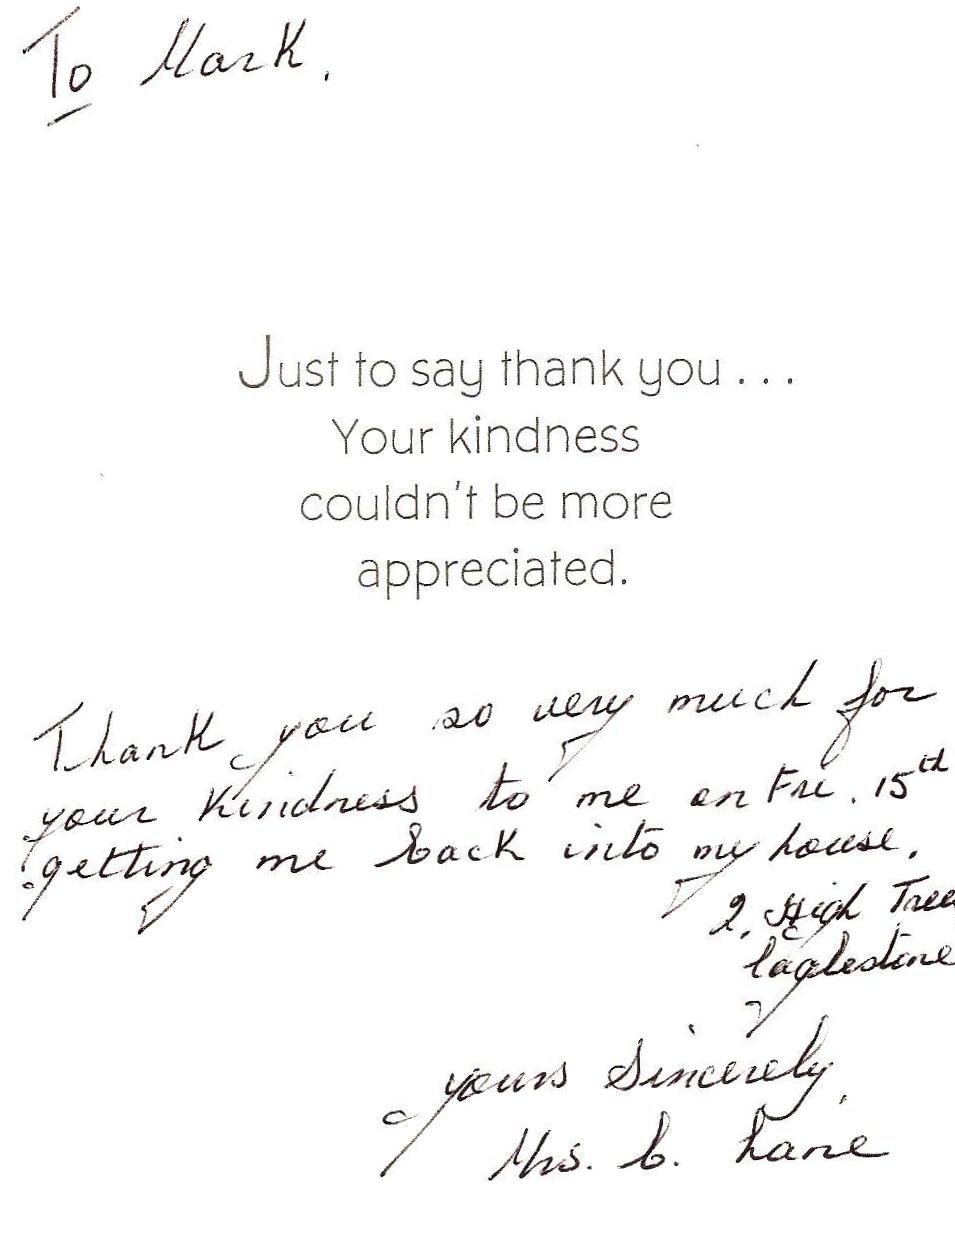 To Mark.
Just to say thank you ...
Your kindness
couldn't be more
appreciated.
Thank you so very much for
your kindness to me on Fri. 15th
getting me back into my house.
2, High Tree
Eaglestone
yours Sincerely,
Mrs. Lane